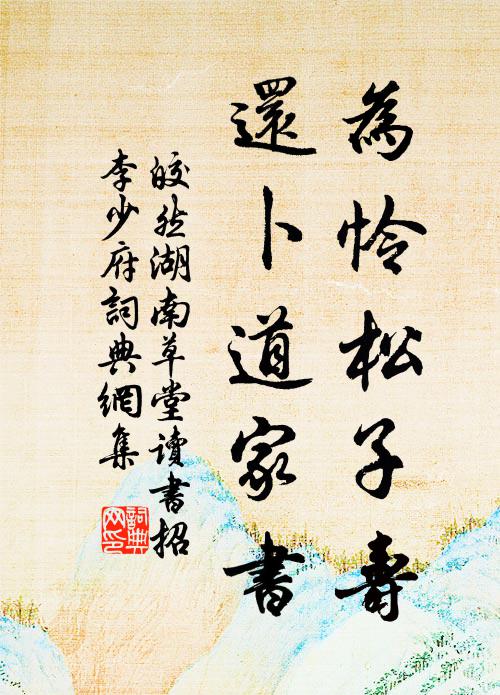 為怜松子壽
還卜道家書
皎然湖南草堂讀書招
李少府詞典網集
詞典
网印